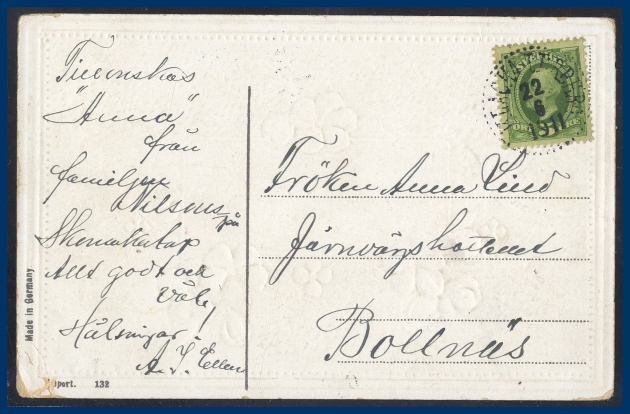 Tillönskas
"Anna"
från
familjen
Nilsons
på
Allt godt och
väl,
Hälsningar!
A. J. Ellen
Made in Germany
132
22
6
1911
Fröken Anna Lind
Järnvägshotellet
Bollnäs